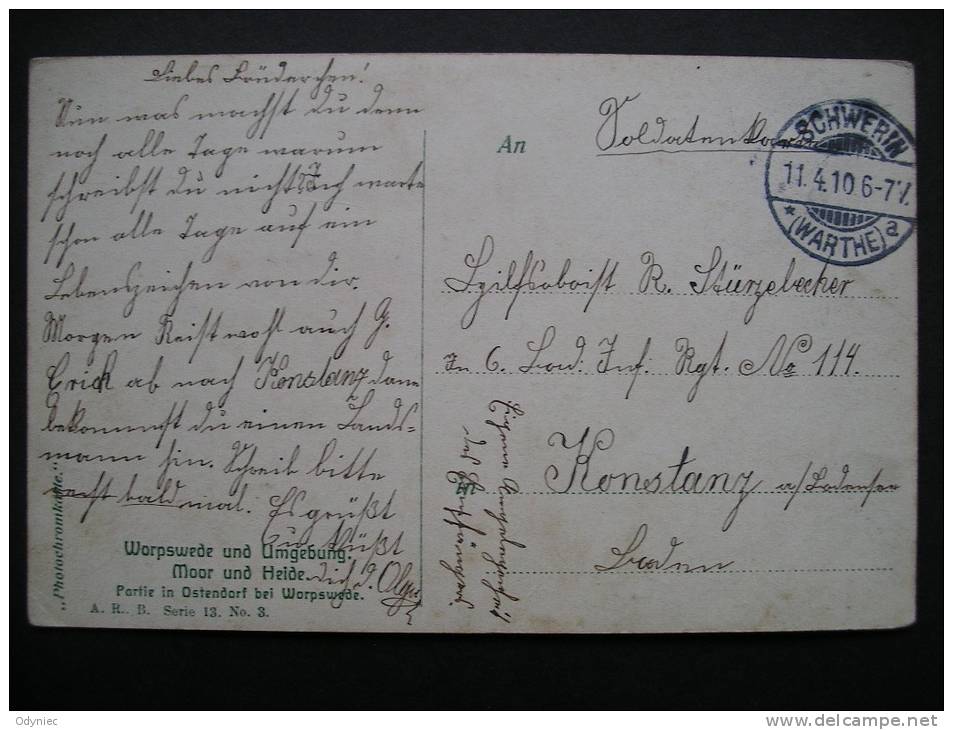 Liebes Brüderchen!
Nun was machst du denn
noch alle Tage warum
schreibst du nicht? Ich warte
schon alle Tage auf ein
Lebenszeichen von dir.
Morgen Reist wohl auch G.
Erich ab nach Konstanz dann
bekommst du einen Lands-
mann hin. Schreib bitte
recht bald mal. Es grüßt
und küßt
dich d. Olga
"Photochromkarte."
Worpswede und Umgebung.
Moor und Heide.
Partie in Ostendorf bei Worpswede.
A. R. B. Serie 13. No. 3.
An
Soldatenkarte
SCHWERIN
11.4.10.6-7V.
* (WARTHE) a
Hilfsoboist R. Stürzebecher
In 6. Bad. Inf. Rgt. No 114.
in
Konstanz a/Bodensee
Baden
Eigene Angelegenheit
des Empfängers.
Odyniec
www.delcampe.net